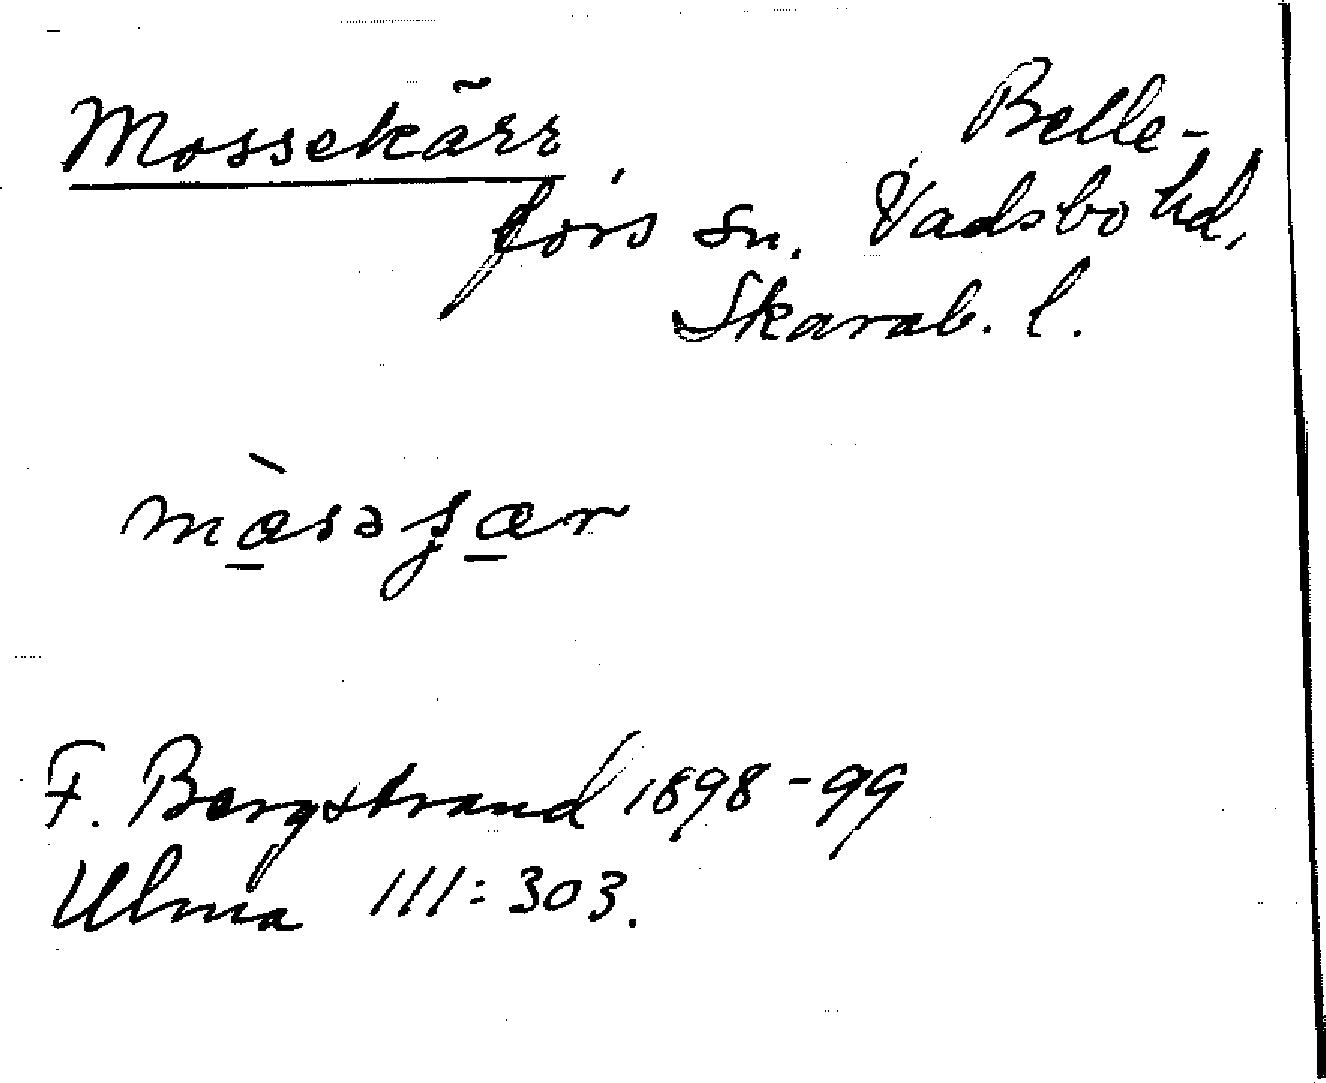 Mossekärr, Belle-
fors sn. Vadsbo hd,
Skarab. l.
F. Bergstrand 1898-99
Ulma 111:303.